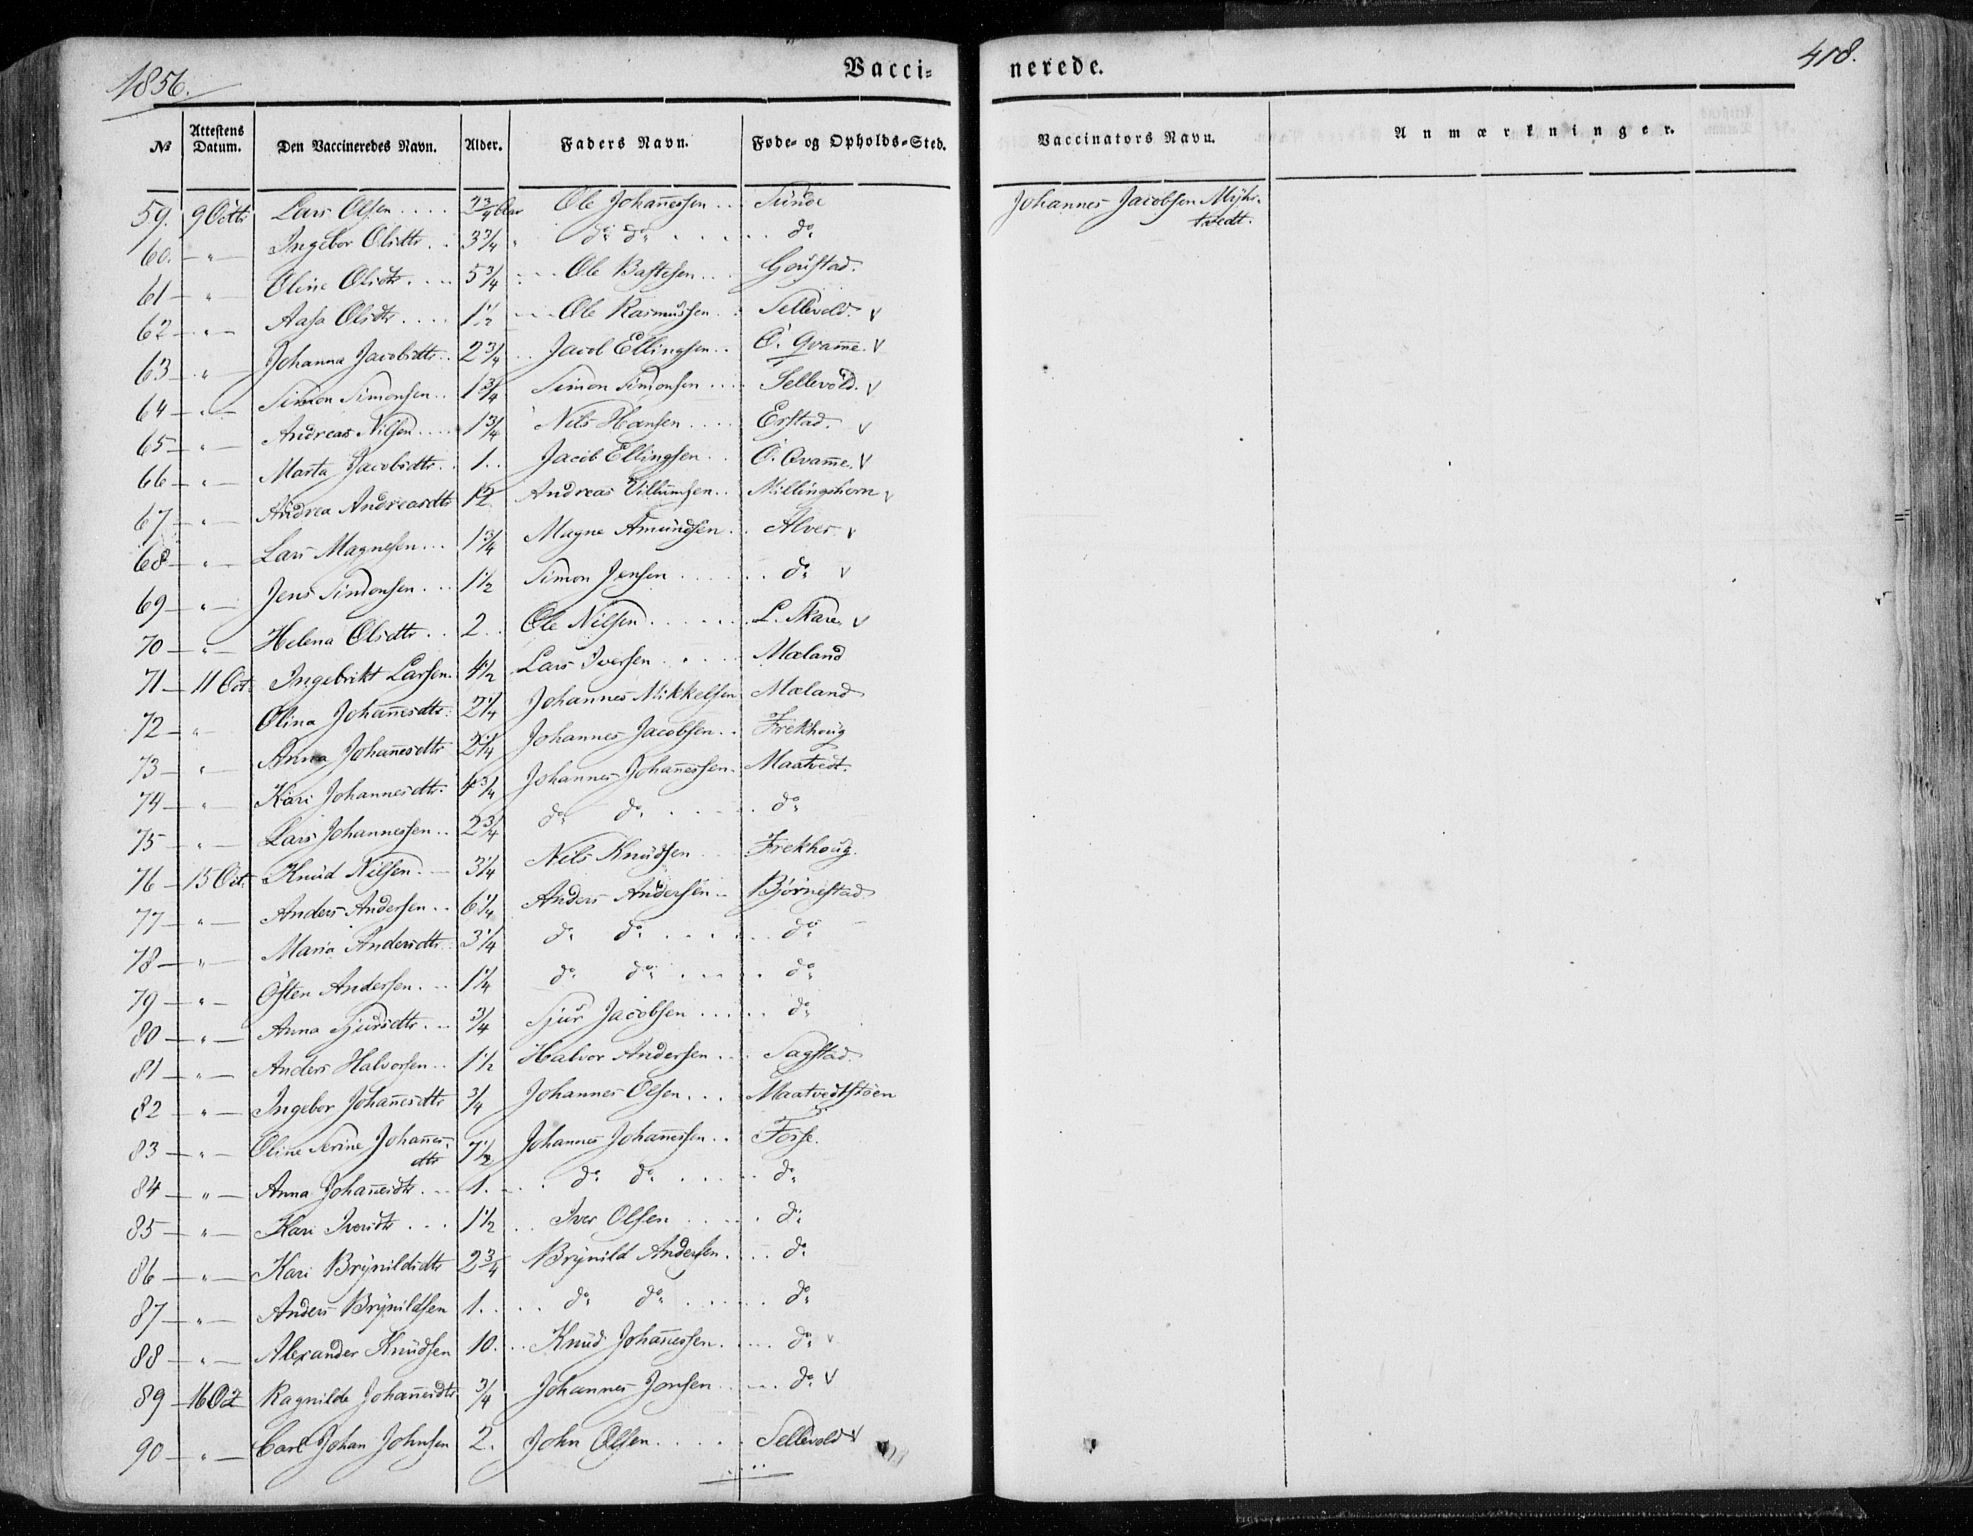 1856.
Vacci-
nerede.
418.
№ Attestens Datum. Den Vaccineredes Navn. Alder. Faders Navn. Føde- og Opholds-Sted. Vaccinators Navn. Anmærkninger.
59. 9 Octb Lars Olsen .... 2 3/4 Aar Ole Johan̄essen .. Sunde Johannes Jacobsen Myhr-
tvedt.
60. – " – Ingebor Olsdtr .. 3 3/4 " do do ..... do
61 – " – Oline Olsdtr .... 5 3/4 .. Ole Bastesen ... Gaustad.
62 – " – Aasa Olsdtr .... 1 1/2 ... Ole Rasmussen .. Sellevold. v
63 – " – Johanna Jacobsdtr .. 2 3/4 .. Jacob Ellingsen .. Ö. Qvam̄e. v
64 – " – Simon Simonsen .. 1 3/4 Simon Simonsen .... Sellevold. v
65 – " – Andreas Nilsen .... 1 3/4 Nils Hansen .... Erstad. v
66 – " – Marta Jacobsdtr .. 1 .. Jacob Ellingsen .. Ö. Qvam̄e. v
67 – " – Andrea Andreasdtr 1 1/2 Andreas Villumsen .. Millingshorn v
68 – " – Lars Magnesen ... 1 3/4 Magne Amundsen .. Alver v
69 – " – Jens Simonsen ... 1 1/2 Simon Jensen ...... do v
70 – " – Helena Olsdtr .. 2 .. Ole Nilsen ....... L. Skare v
71 – 11 Oct. Ingebrikt Larsen. 4 1/2 Lars Iversen .... Mæland
72 – " Olina Johan̄esdtr. 2 1/4 Johannes Mikkelsen Mæland
73 – " – Anna Johan̄esdtr 2 1/4 Johannes Jacobsen .. Frekhoug
74 – " Kari Johannesdtr. 4 3/4 Johannes Johan̄essen. Maatvedt.
75 – " Lars Johannessen .. 2 3/4 do do ..... do
76 – 15 Oct. Knud Nilsen. – 3 1/4 Nils Knudsen .. Frekhoug.
77 – " – Anders Andersen .. 6 1/4 Anders Andersen .. Björnestad
78 – " – Maria Andersdtr. 3 1/4 do do ...... do
79 – " – Östen Andersen. .. 1 1/4 do do ..... do
80 – " – Anna Sjursdtr. .. 3/4 Sjur Jacobsen ..... do
81 – " – Anders Halvorsen .. 1 1/2 Halvor Andersen ... Sagstad.
82 – " – Ingebor Johan̄esdtr 3/4 Johannes Olsen ... Maatvedtstöen
83 – " – Oline Serine Johan̄es-
dtr 7 1/2 Johannes Johan̄essen .. Fosse.
84 – " – Anna Johan̄esdtr. .. 1. .. do do ..... do
85 – " – Kari Iversdtr ... 1 1/2 .. Iver Olsen ..... do
86 – " – Kari Brynildsdtr 2 3/4 Brynild Andersen. .. do
87 – " – Anders Brynildsen 1. .. do do ..... do
88 – " – Alexander Knudsen 10. .. Knud Johan̄essen. ... do v
89 – 16 Oct Ragnilde Johan̄esdtr 3/4 Johannes Jonsen .... do v
90 – " – Carl Johan Johnsen 2. John Olsen ..... Sellevold v